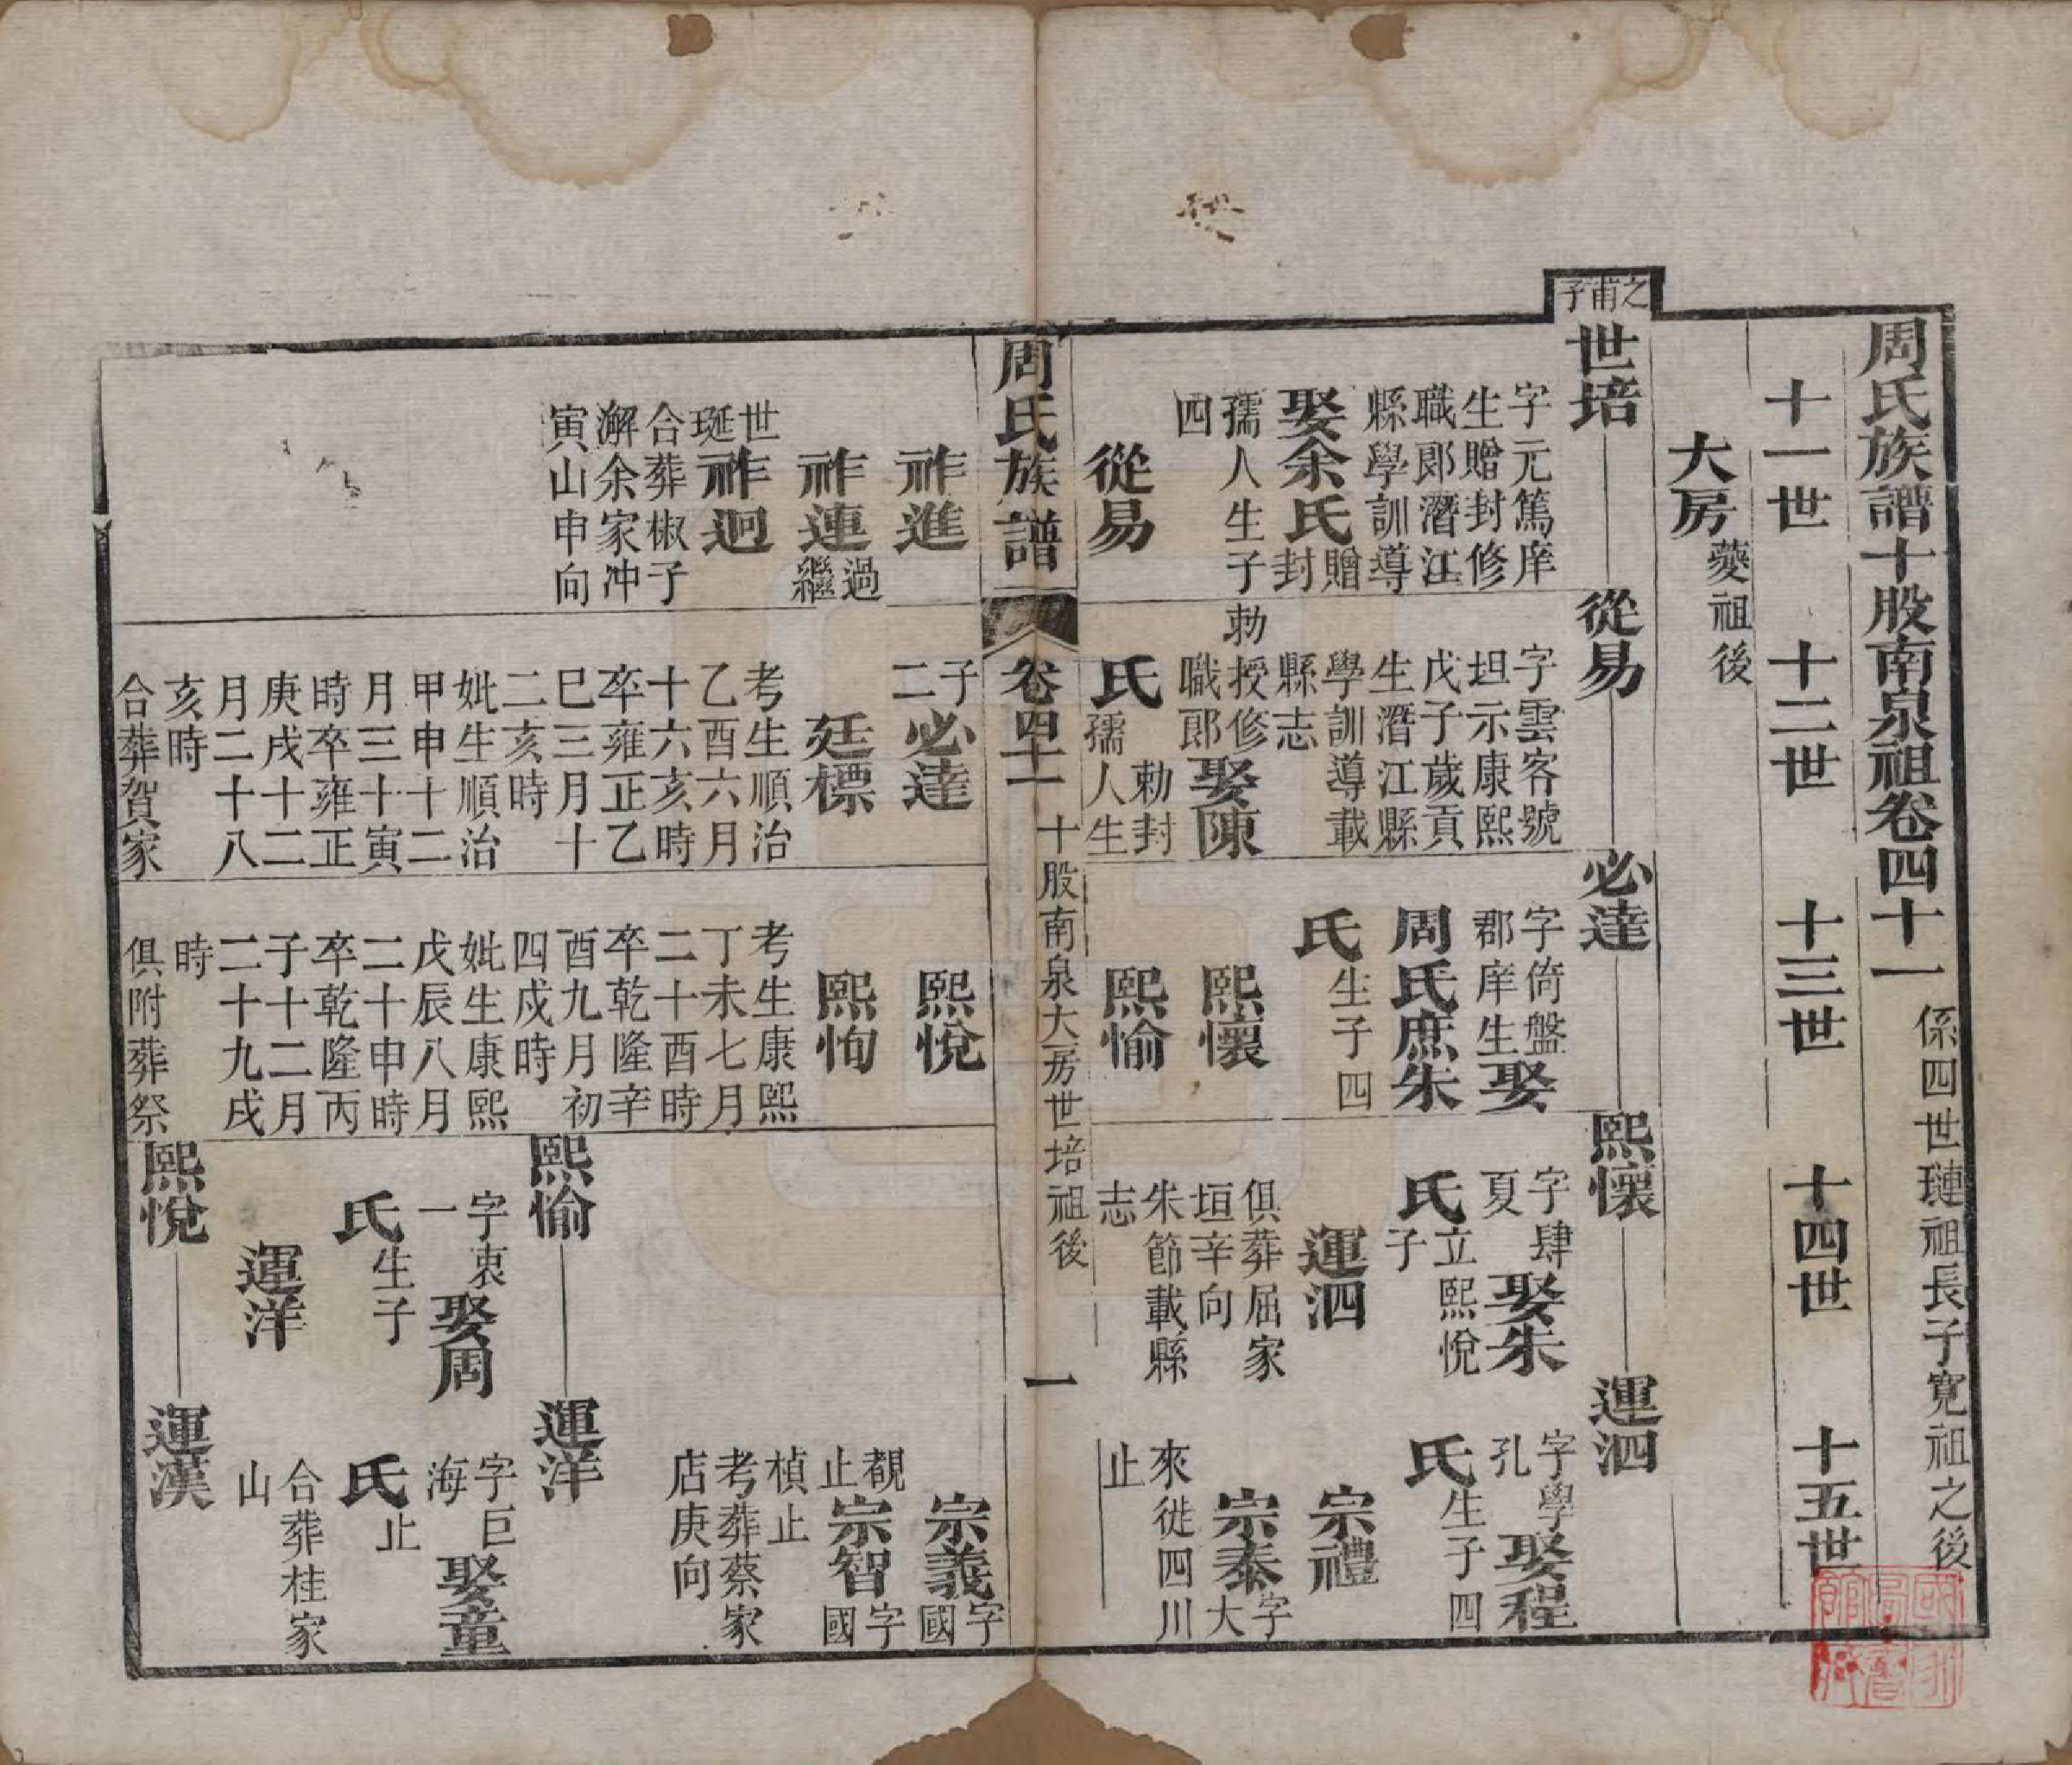 周氏族譜十股南泉祖卷四十一 係四世璉祖長子寬祖之後
十一世 十二世 十三世 十四世 十五世
大房 夔祖後
之甫子
世培 從易 必達 熙懷 運泗
字元篤庠
生贈封修
職郎潛江
縣學訓導
娶余氏 贈封
孺人生子
四
從易
祚進
祚連 過繼
祚迥
世珽
合葬椒子
澥余家冲
寅山申向
字雲客號
坦示康熙
戊子歲貢
生潛江縣
學訓導載
縣志
勅授修
職郎 娶陳
氏 勅封
孺人生
子二 必達
廷標
考生順治
乙酉六月
十六亥時
卒雍正乙
巳三月十
二亥時
妣生順治
甲申十二
月三十寅
時卒雍正
庚戌十二
月二十八
亥時
合葬賀家
字倚盤
郡庠生 娶
周氏庶朱
氏 生子四
熙懷
熙愉
熙悅
熙恂
考生康熙
丁未七月
二十酉時
卒乾隆辛
酉九月初
四戌時
妣生康熙
戊辰八月
二十申時
卒乾隆丙
子十二月
二十九戌
時
俱附葬祭
字肆
夏 娶朱
氏 立熙悅
子
運泗
俱葬屈家
垣辛向
朱節載縣
志
字學
孔 娶程
氏 生子四
宗禮
宗泰 字大
來徙四川
止
宗義 字國
覩止
宗智 字國
楨止
考葬蔡家
店庚向
熙愉 運洋
字衷
一 娶周
氏 生子
運洋
字巨
海 娶童
氏 止
合葬桂家
山
熙悅 運漢
周氏族譜 卷四十一 十股南泉大房世培祖後 一
國立圖書館藏